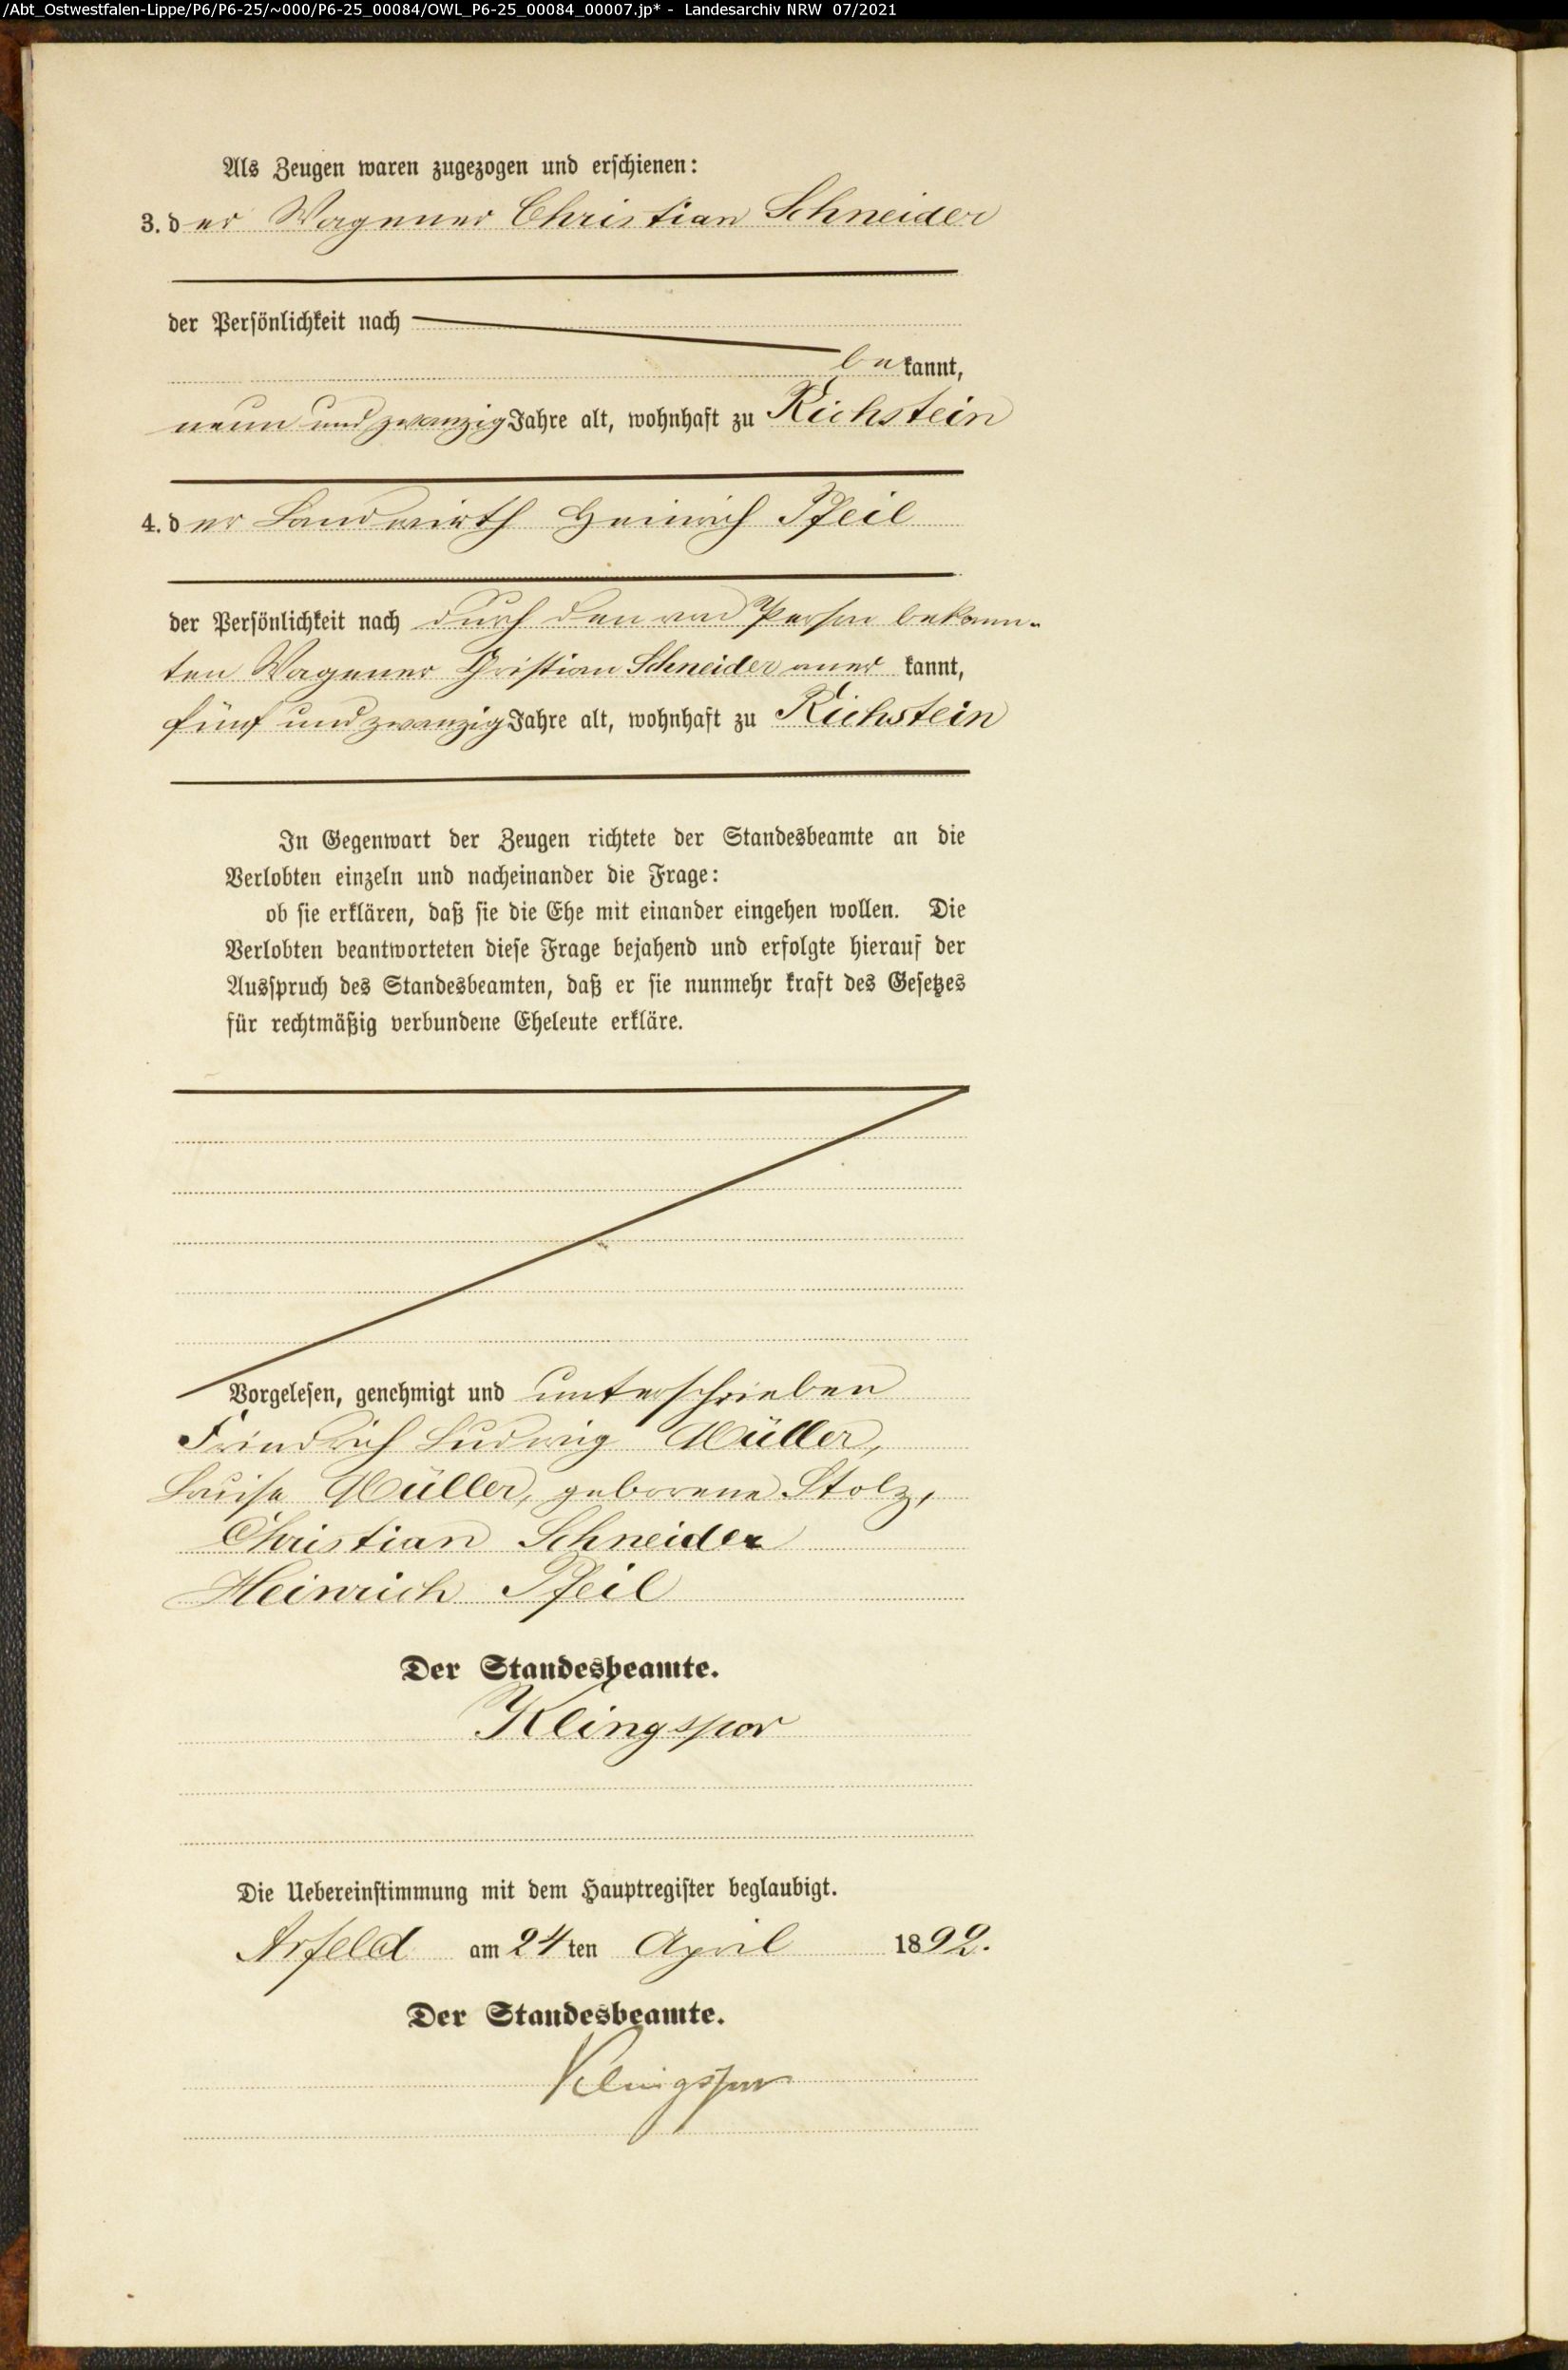 /Abt_Ostwestfalen-Lippe/P6/P6-25/~000/P6-25_00084/OWL_P6-25_00084_00007.jp* - Landesarchiv NRW 07/2021
Als Zeugen waren zugezogen und erschienen:
3. der Wagener Christian Schneider
der Persönlichkeit nach
bekannt,
neun und zwanzig Jahre alt, wohnhaft zu Richstein
4. der Landwirth Heinrich Pfeil
der Persönlichkeit nach durch den von Person bekann-
ten Wagener Christian Schneider anerkannt,
fünf und zwanzig Jahre alt, wohnhaft zu Richstein
In Gegenwart der Zeugen richtete der Standesbeamte an die
Verlobten einzeln und nacheinander die Frage:
ob sie erklären, daß sie die Ehe mit einander eingehen wollen. Die
Verlobten beantworteten diese Frage bejahend und erfolgte hierauf der
Ausspruch des Standesbeamten, daß er sie nunmehr kraft des Gesetzes
für rechtmäßig verbundene Eheleute erkläre.
Vorgelesen, genehmigt und unterschrieben
Friedrich Ludwig Müller,
Louise Müller, geborene Stolz,
Christian Schneider
Heinrich Pfeil
Der Standesbeamte.
Klingspor
Die Uebereinstimmung mit dem Hauptregister beglaubigt.
Arfeld am 24ten April 1892.
Der Standesbeamte.
Klingspor